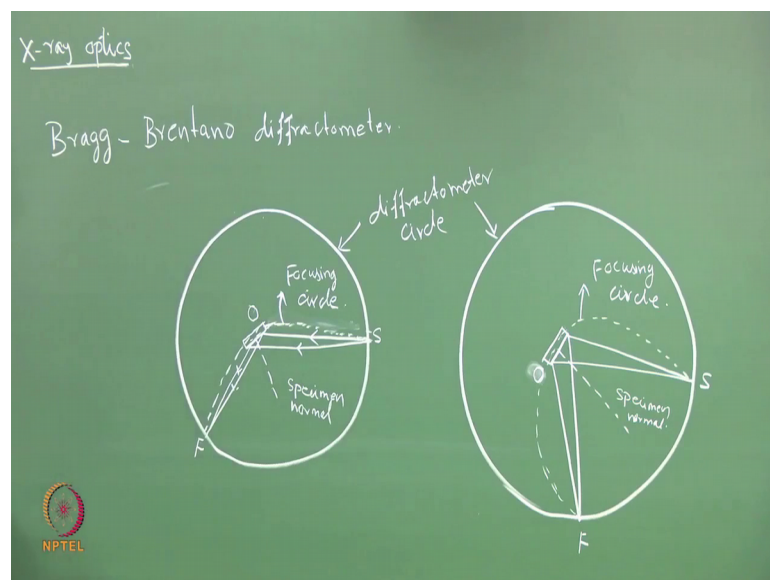 X-ray optics
Bragg - Brentano diffractometer.
diffractometer
circle
Focusing
circle.
O
S
Specimen
normal
F
Focusing
circle.
O
S
Specimen
normal.
F
NPTEL